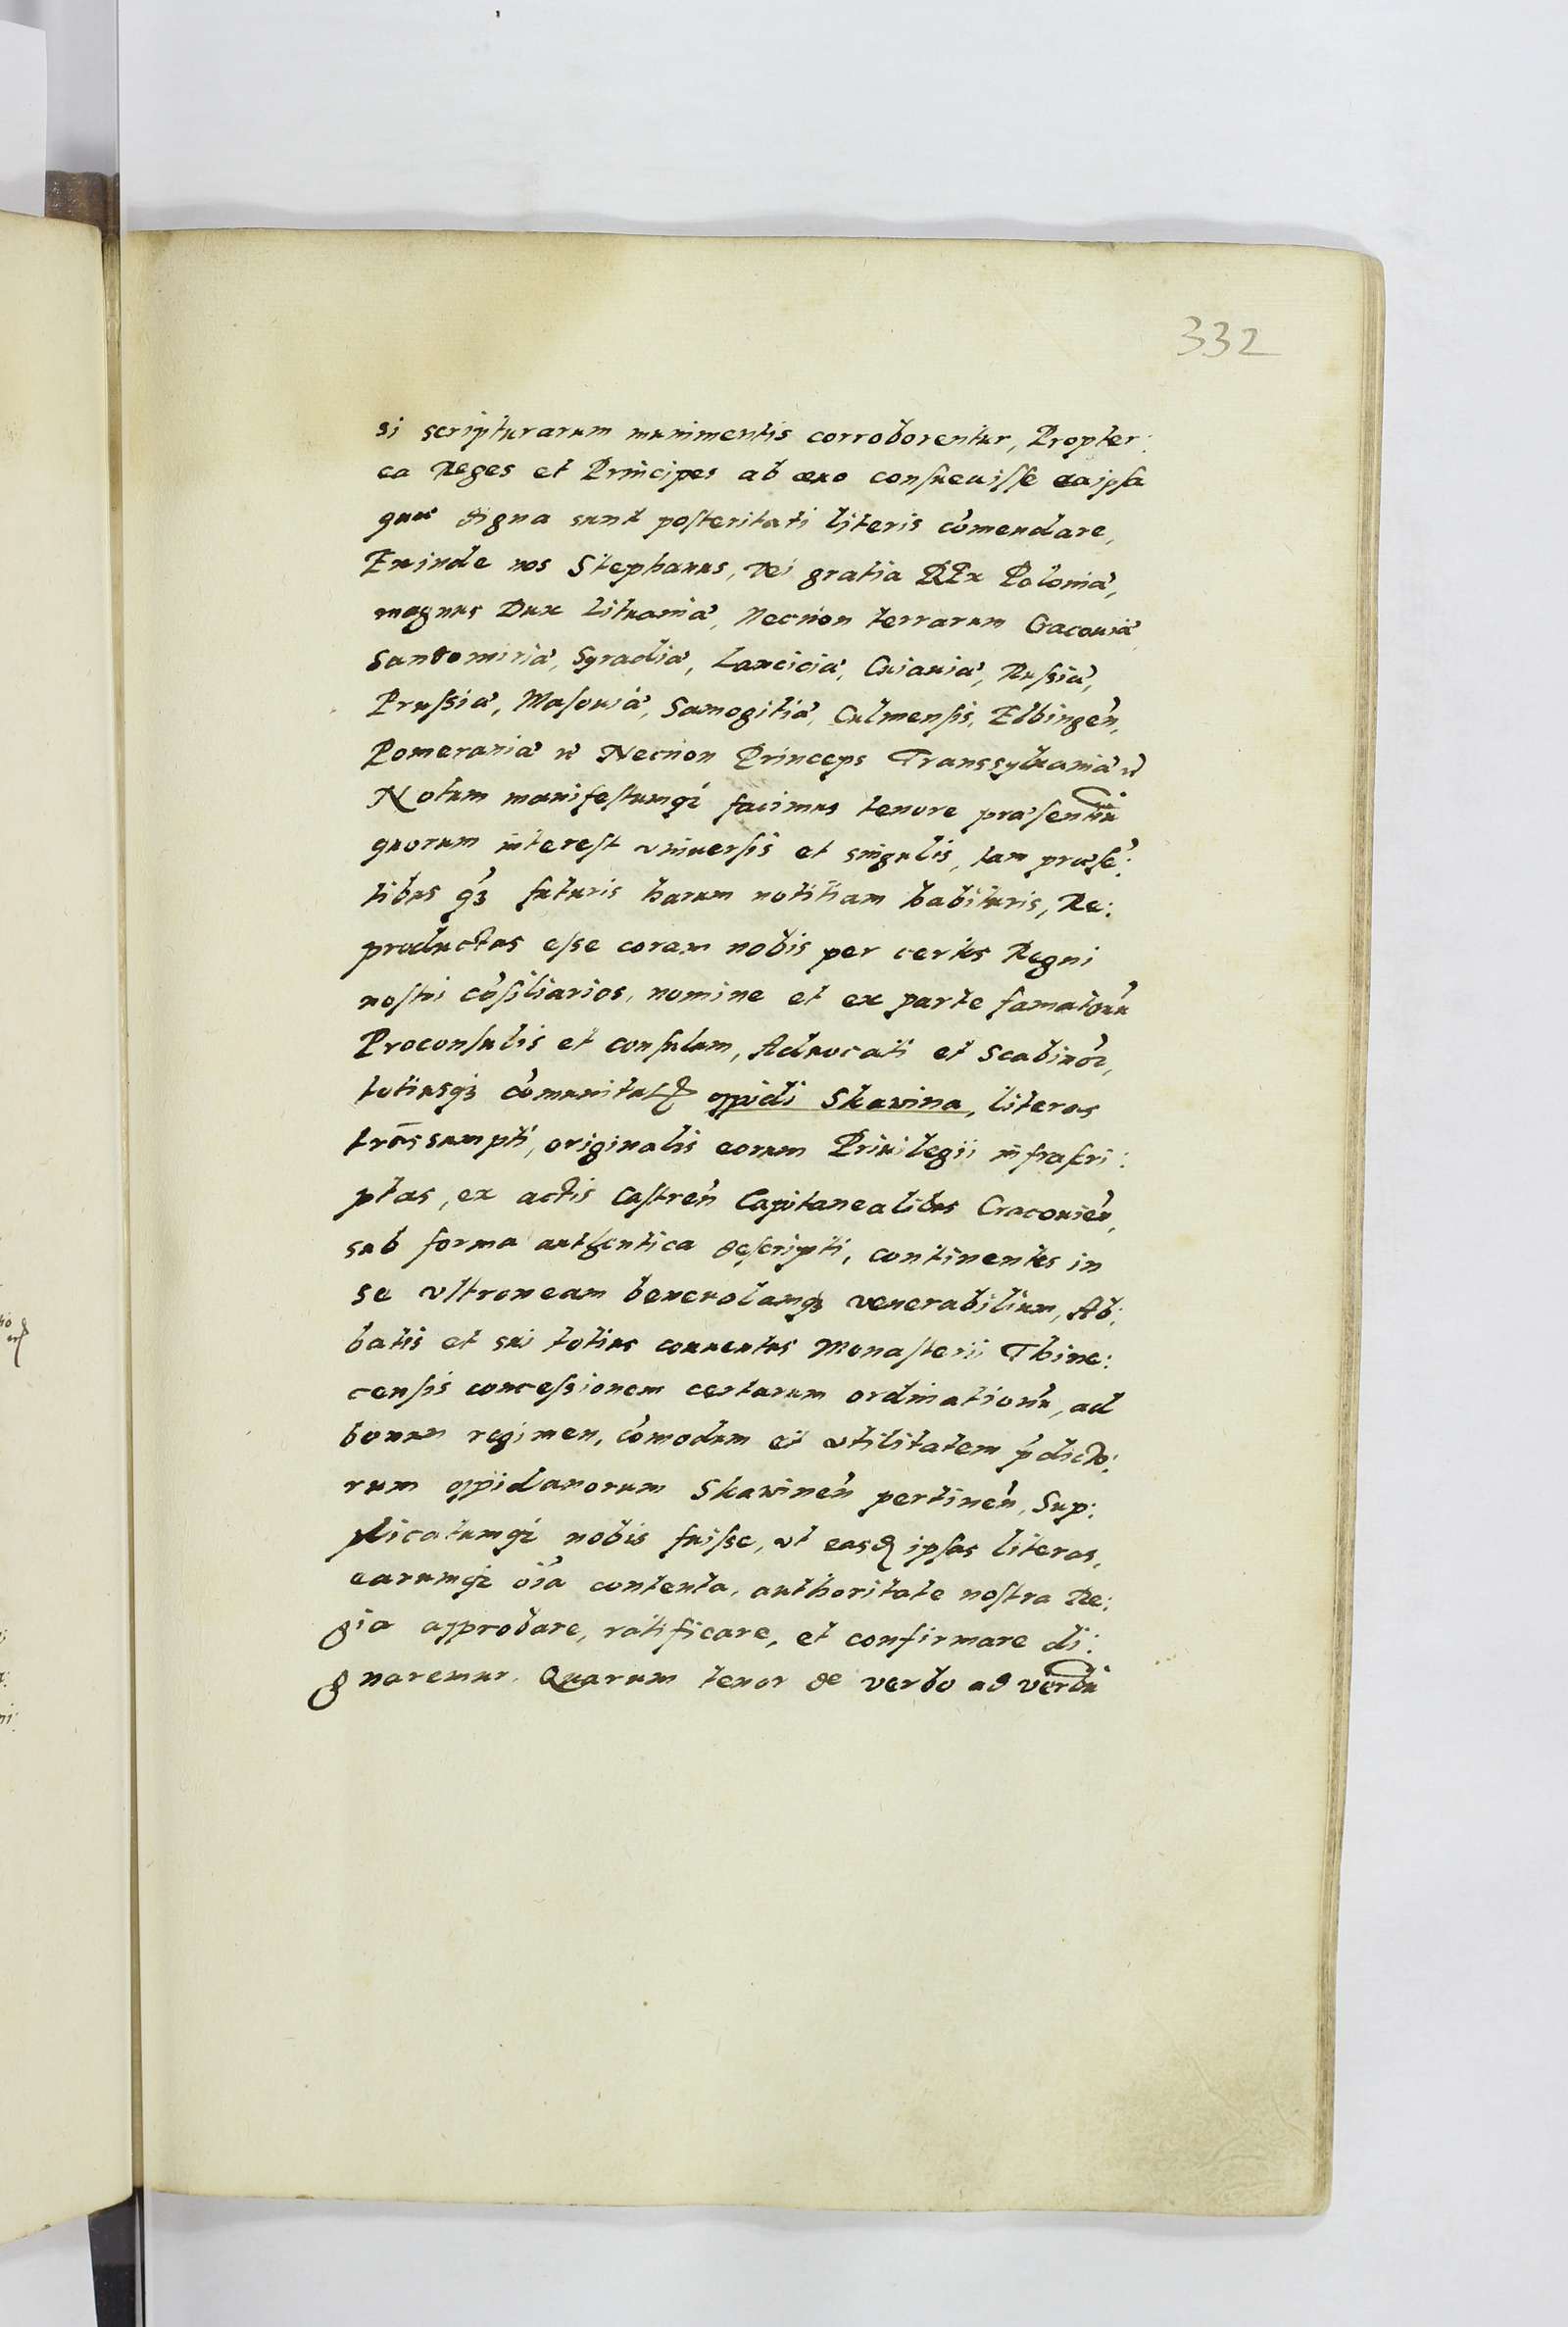 332
si scripturarum munimentis corroborentur, Propter:
ea Reges et Principes ab æuo consueuisse eaipsa
quæ digna sunt posteritati literis cõmendare,
Exinde nos Stephanus, Dei gratia REx Poloniæ,
magnus Dux Lituaniæ, Necnon terrarum Cracouiæ,
Sandomiriæ, Syradiæ, Lanciciæ, Cuiauiæ, Russiæ,
Prussiæ, Masouiæ, Samogitiæ, Culmensis, Elbingeñ,
Pomeraniæ Necnon Princeps Transsyluaniæ
Notum manifestumq; facimus tenore præsentiũ
quorum interest vniuersis et singulis, tam præsẽ:
tibus q̃3 futuris harum notitiam habituris, Re:
productas esse coram nobis per certos Regni
nostri cõsiliarios, nomine et ex parte famatorũ
Proconsulis et consulum, Aduocati et Scabinor̃,
totiusq3 cõmunitatis oppidi Skawina, literas
trãssumpti, originalis eorum Priuilegii infrascri:
ptas, ex actis Castreñ Capitanealibus Cracouieñ,
sub forma authentica descripti, continentes in
se vltroneam beneuolamq3 venerabilium, Ab:
batis et sui totius conuentus Monasterii Thine:
censis concessionem certarum ordinationũ, ad
bonum regimen, cõmodum et vtilitatem p̃dicto:
rum oppidanorum Skawineñ pertineñ, Sup:
plicatumq; nobis fuisse, vt easd ipsas literas,
earumq; oĩa contenta, authoritate nostra Re:
gia approbare, ratificare, et confirmare di:
gnaremur. Quarum tenor de verbo ad verbũ